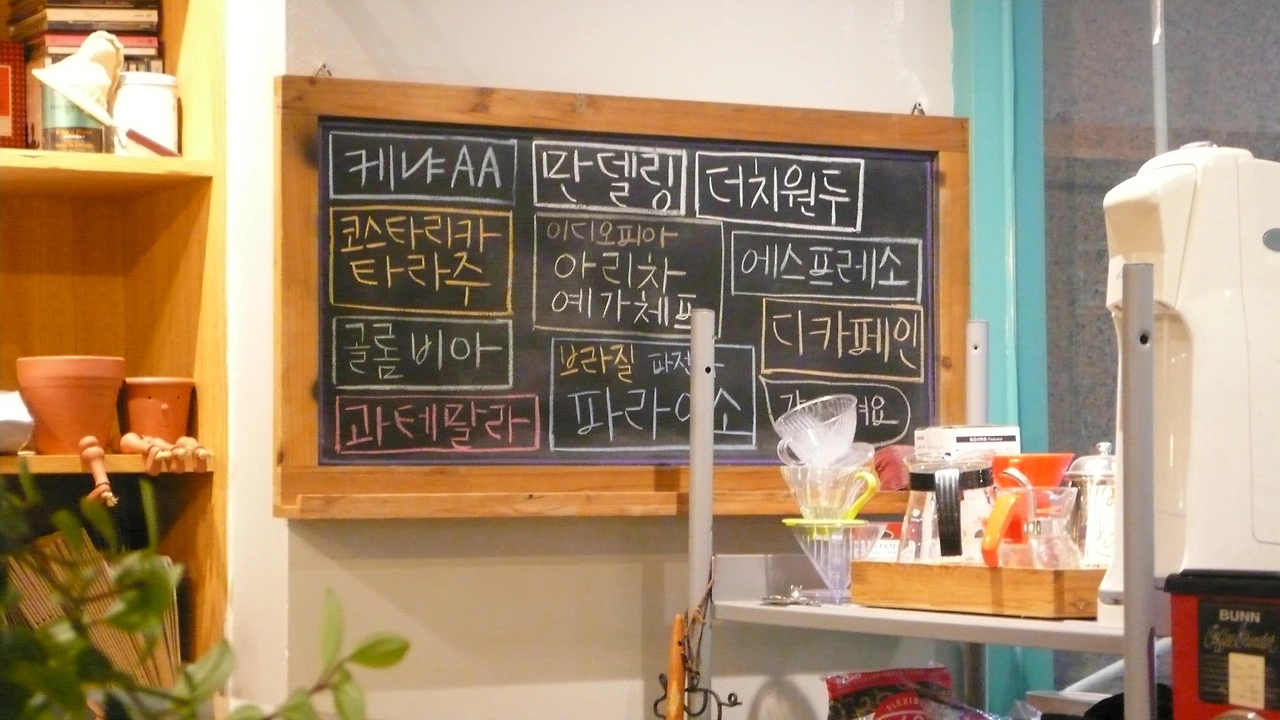 케냐AA
코스타리카
타라주
콜롬비아
과테말라
만델링
이디오피아
아리차
예가체프
브라질
파라이소
더치원두
에스프레소
디카페인
BUNN